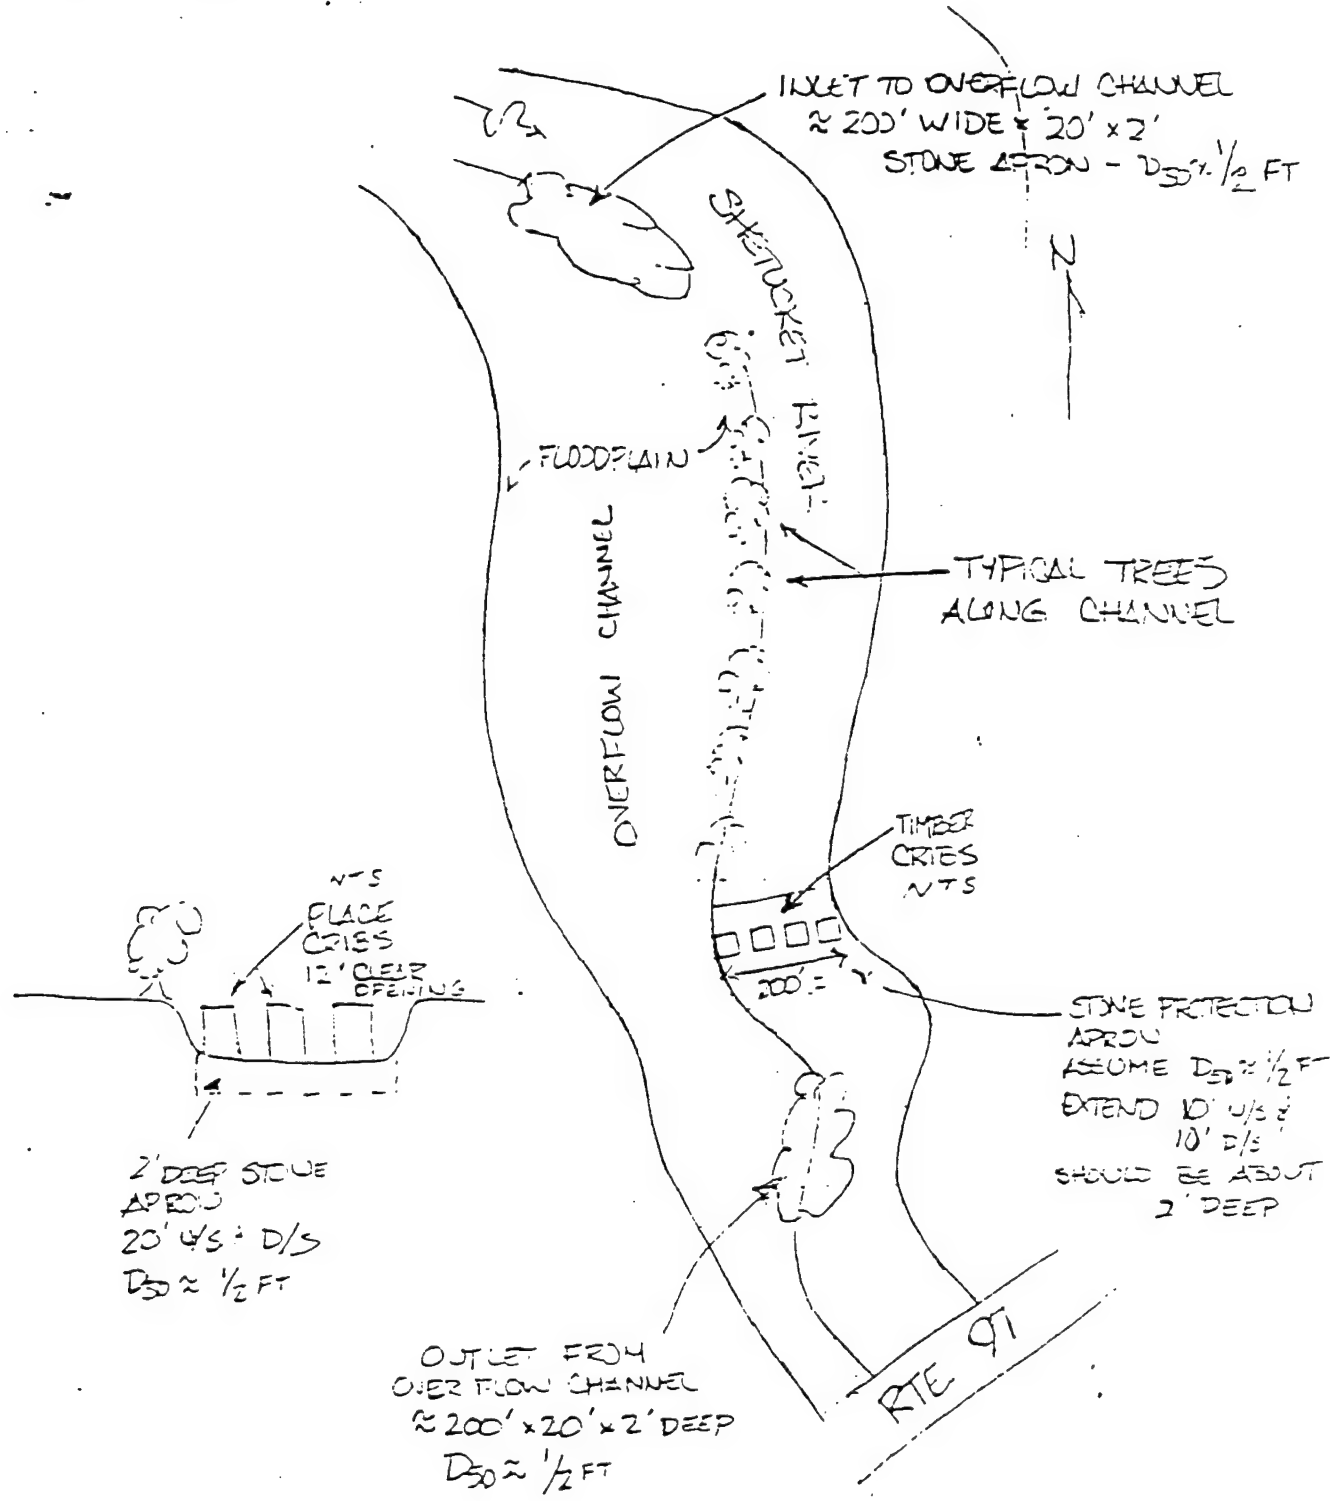 INLET TO OVERFLOW CHANNEL
≈ 200' WIDE × 20' × 2'
STONE APRON - D50 ≈ 1/2 FT
N
SHETUCKET RIVER
FLOODPLAIN
OVERFLOW CHANNEL
TYPICAL TREES
ALONG CHANNEL
TIMBER
CRIBS
NTS
200'±
NTS
PLACE
CRIBS
12' CLEAR
OPENING
STONE PROTECTION
APRON
ASSUME D50 ≈ 1/2 FT
EXTEND 10' U/S &
10' D/S
SHOULD BE ABOUT
2' DEEP
2' DEEP STONE
APRON
20' U/S & D/S
D50 ≈ 1/2 FT
OUTLET FROM
OVERFLOW CHANNEL
≈ 200' × 20' × 2' DEEP
D50 ≈ 1/2 FT
RTE 97